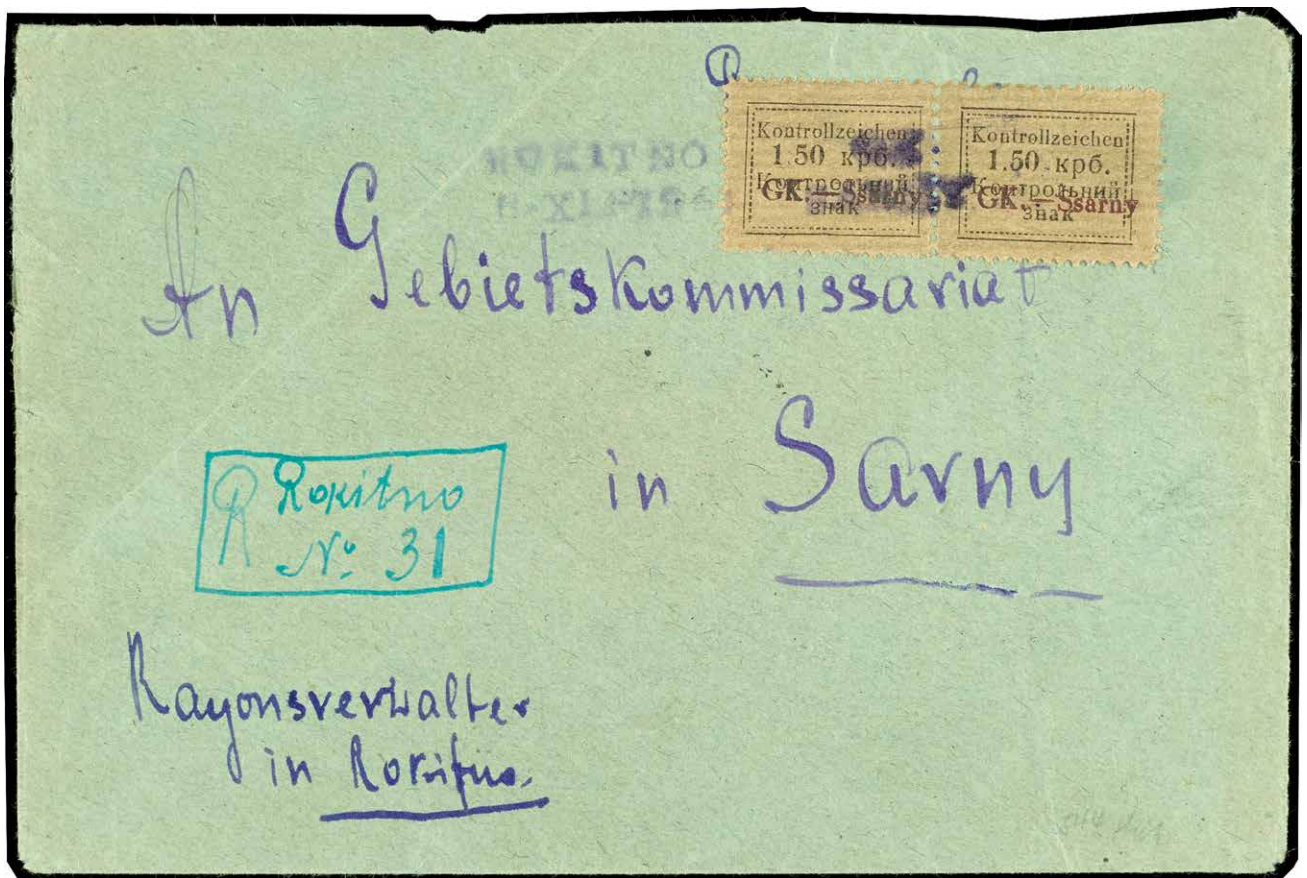 Kontrollzeichen
1.50 крб.
Контрольний
знак
GK.—Ssarny
Kontrollzeichen
1.50 крб.
Контрольний
знак
GK.—Ssarny
ROKITNO
An Gebietskommissariat
in Sarny
R Rokitno
No 31
Rayonsverwalter
in Rokitno.